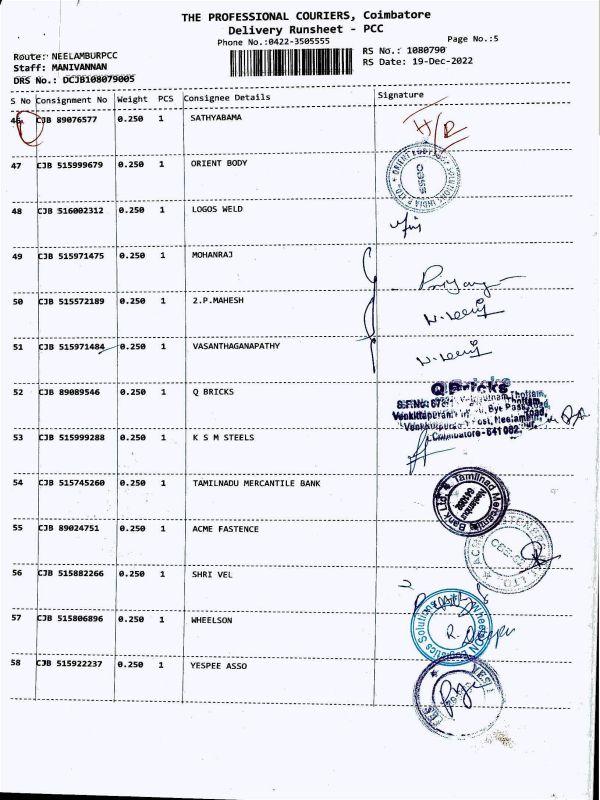 THE PROFESSIONAL COURIERS, Coimbatore
Delivery Runsheet - PCC
Phone No.:0422-3505555
Page No.:5
Route: NEELAMBURPCC
RS No.: 1080790
Staff: MANIVANNAN
RS Date: 19-Dec-2022
DRS No.: DCJB108079005
S No Consignment No Weight PCS Consignee Details Signature
46 CJB 89076577 0.250 1 SATHYABAMA
H/R
47 CJB 515999679 0.250 1 ORIENT BODY
48 CJB 516002312 0.250 1 LOGOS WELD
49 CJB 515971475 0.250 1 MOHANRAJ
50 CJB 515572189 0.250 1 2.P.MAHESH
51 CJB 515971484 0.250 1 VASANTHAGANAPATHY
52 CJB 89089546 0.250 1 Q BRICKS
Q Bricks
Coimbatore - 641 062
53 CJB 515999288 0.250 1 K S M STEELS
54 CJB 515745260 0.250 1 TAMILNADU MERCANTILE BANK
Tamilnad Mercantile Bank Ltd
55 CJB 89024751 0.250 1 ACME FASTENCE
56 CJB 515882266 0.250 1 SHRI VEL
57 CJB 515806896 0.250 1 WHEELSON
58 CJB 515922237 0.250 1 YESPEE ASSO